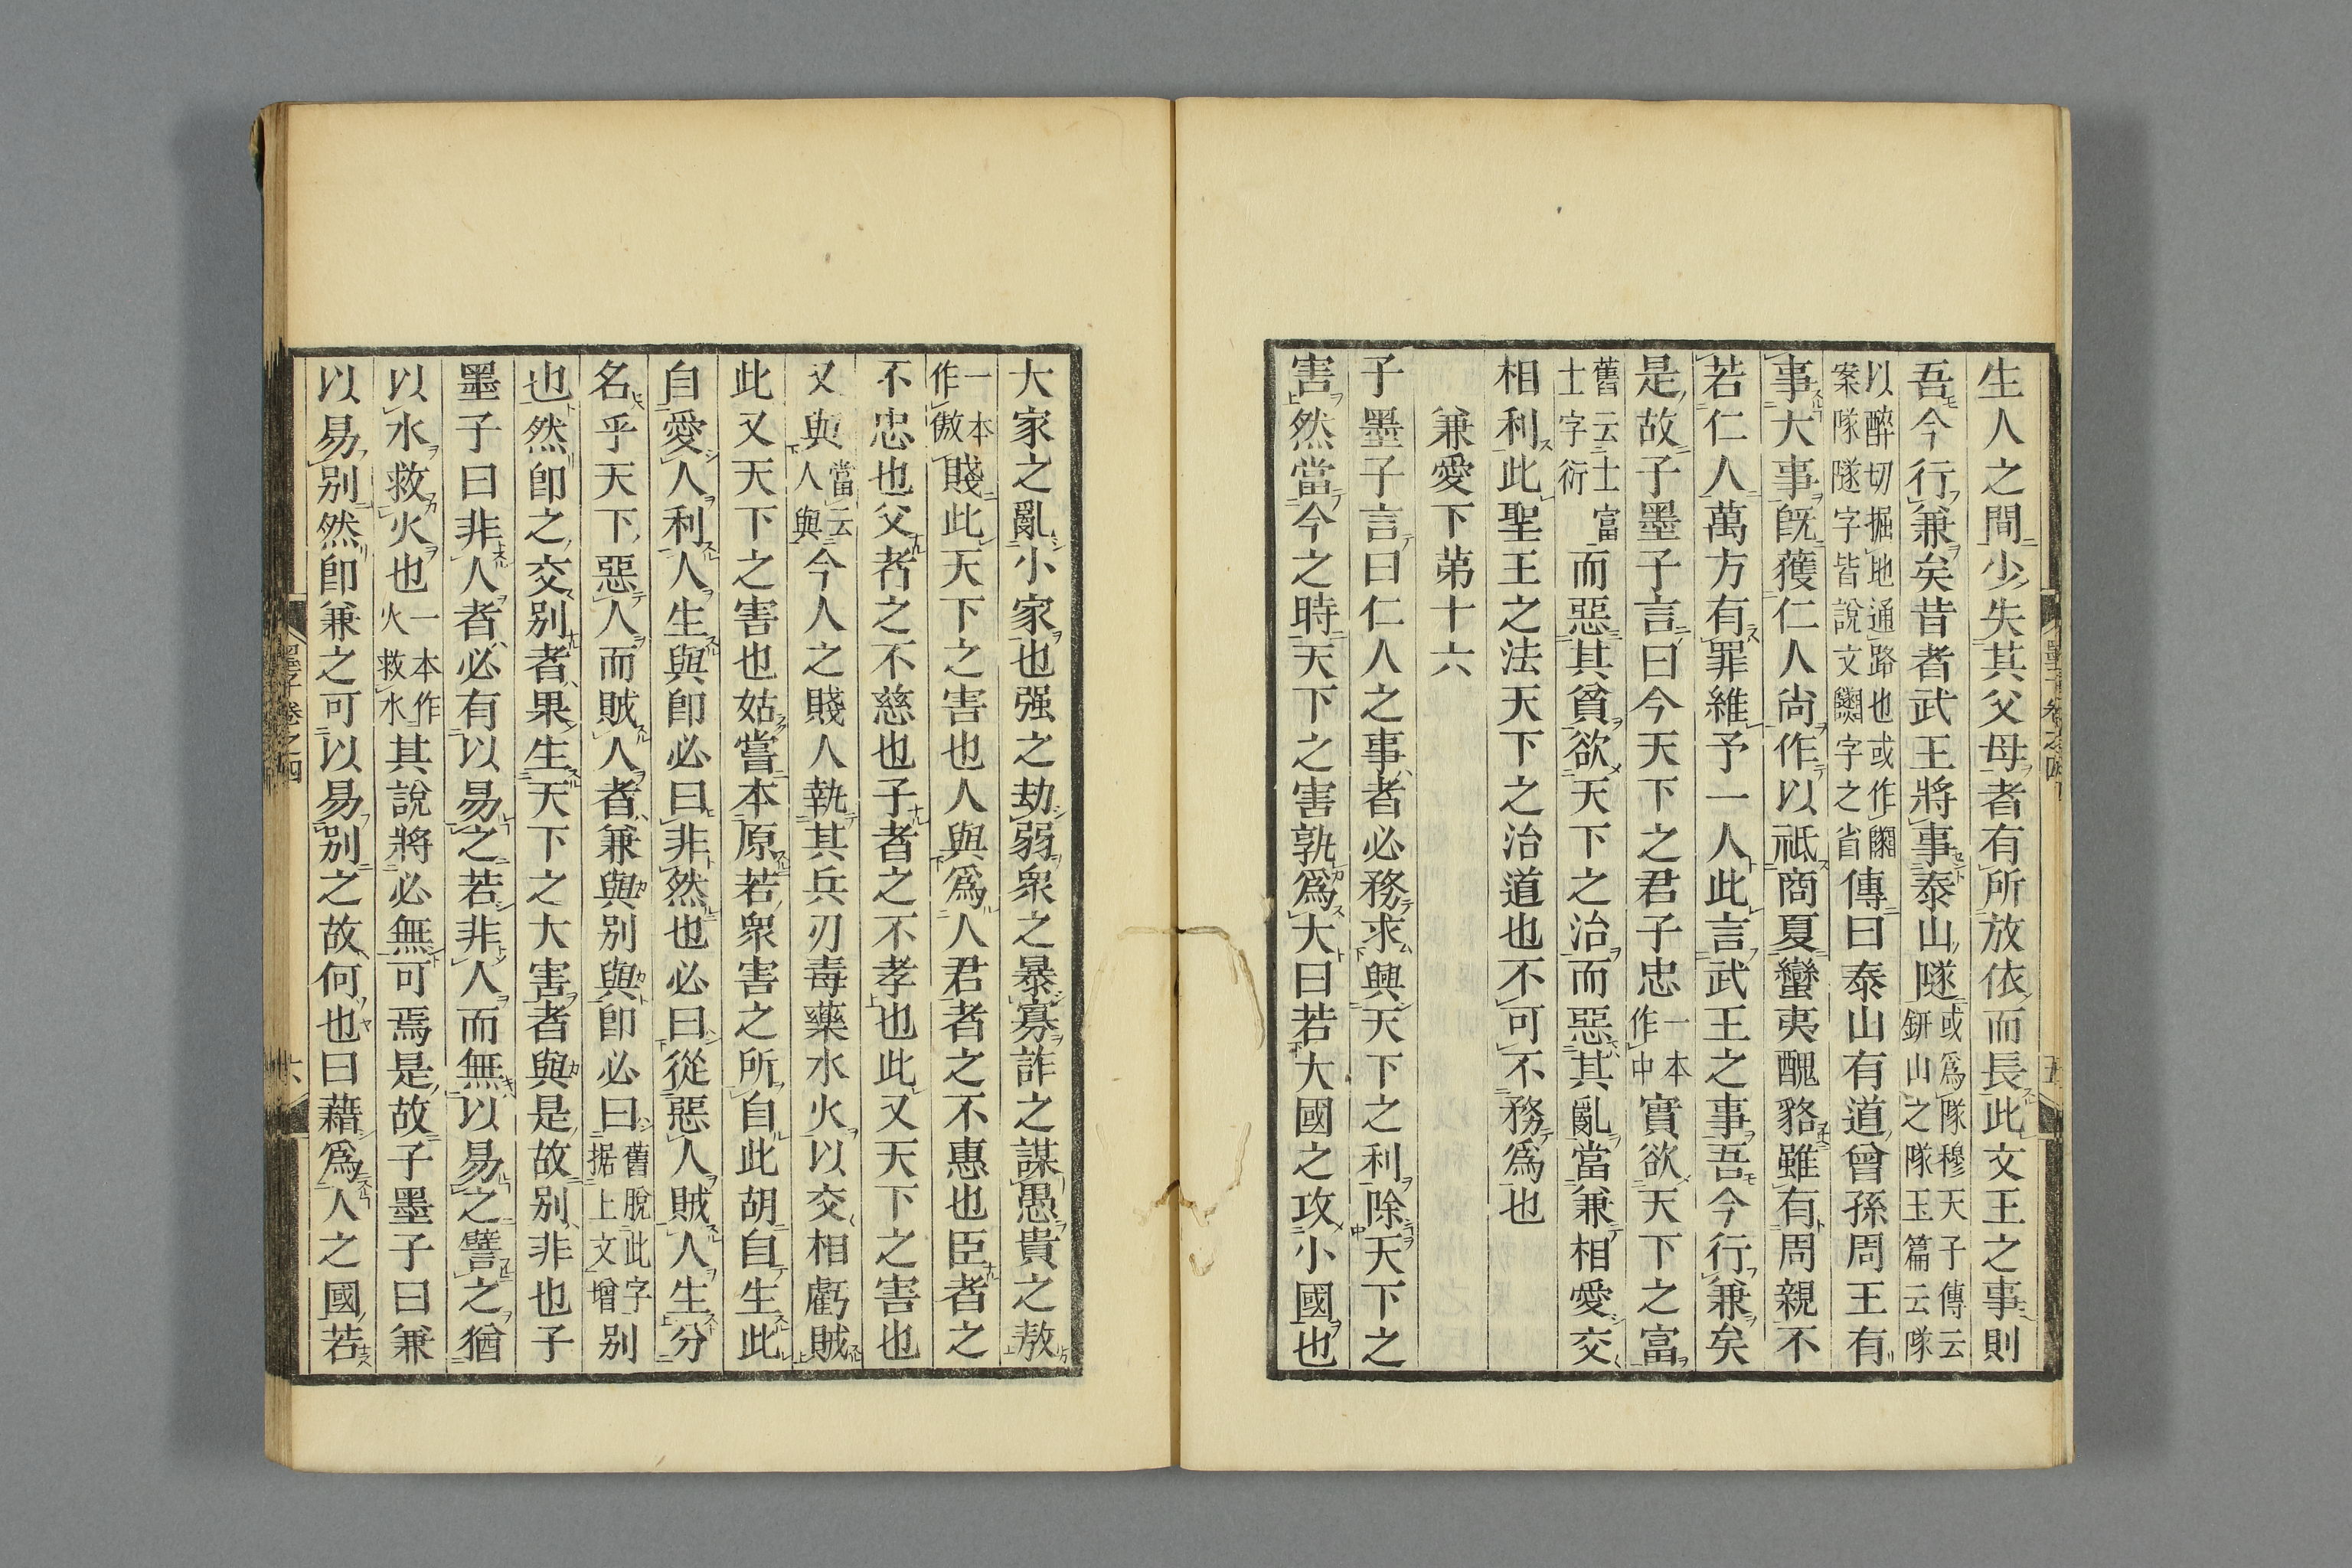 生人之間少失其父母者有所放依而長此文王之事則
吾今行兼矣昔者武王將事泰山隧或爲隊穆天子傳云鈃山之隊玉篇云隊
以醉切掘地通路也或作案隊隧字皆說文字之省傳曰泰山有道曾孫周王有
事大事旣獲仁人尚作以祗商夏蠻夷醜貉雖有周親不
若仁人萬方有罪維予一人此言武王之事吾今行兼矣
是故子墨子言曰今天下之君子忠一本作中實欲天下之富
舊云士富士字衍而惡其貧欲天下之治而惡其亂當兼相愛交
相利此聖王之法天下之治道也不可不務爲也
兼愛下第十六
子墨子言曰仁人之事者必務求興天下之利除天下之
害然當今之時天下之害孰爲大曰若大國之攻小國也
大家之亂小家也强之劫弱衆之暴寡詐之謀愚貴之敖
一本作傲賤此天下之害也人與爲人君者之不惠也臣者之
不忠也父者之不慈也子者之不孝也此又天下之害也
又與當云人與今人之賤人執其兵刃毒藥水火以交相虧賊
此又天下之害也姑嘗本原若衆害之所自此胡自生此
自愛人利人生與卽必曰非然也必曰從惡人賊人生分
名乎天下惡人而賊人者兼與別與卽必曰舊脫此字据上文增別
也然卽之交別者果生天下之大害者與是故別非也子
墨子曰非人者必有以易之若非人而無以易之譬之猶
以水救火也一本作火救水其說將必無可焉是故子墨子曰兼
以易別然卽兼之可以易別之故何也曰藉爲人之國若
墨子卷之四
六